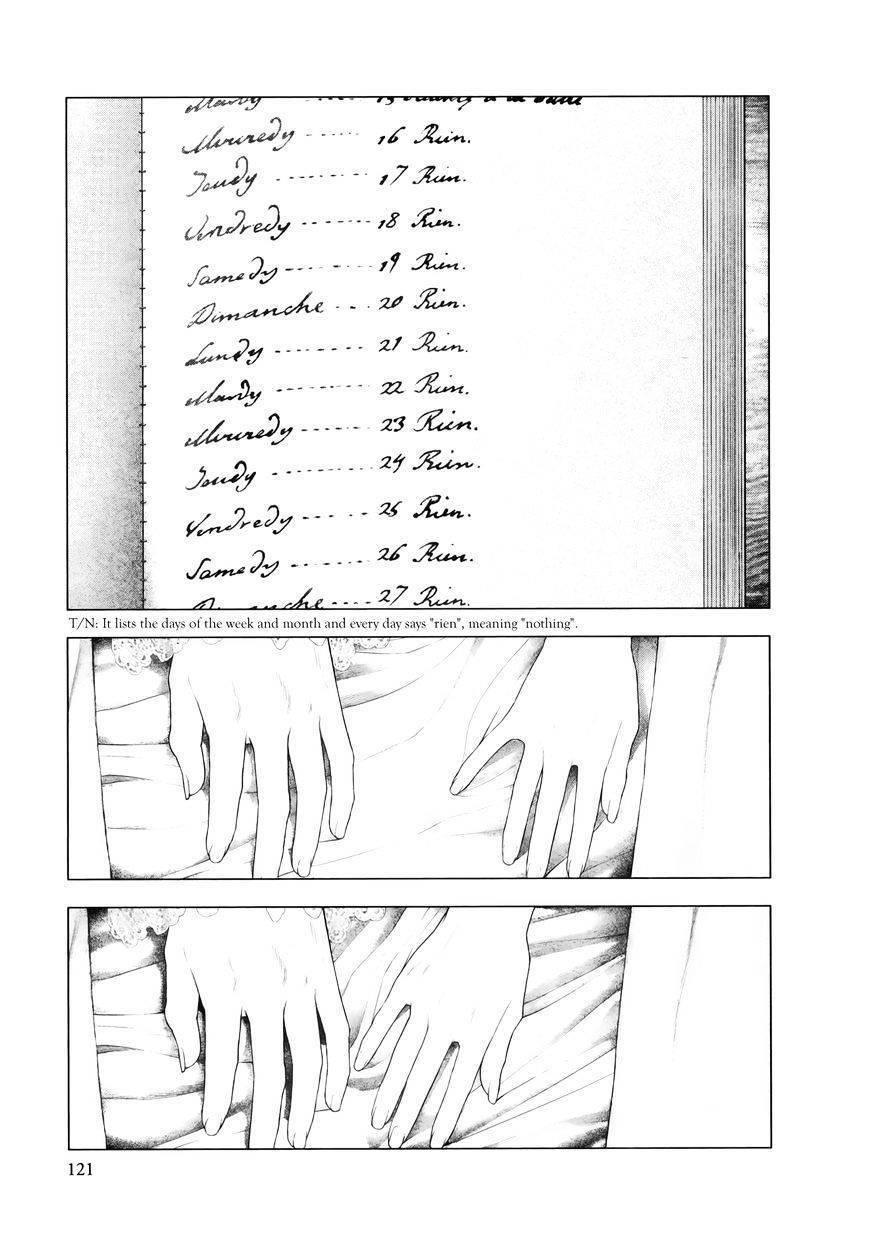 Mercredy ------ 16 Rien.
Jeudy ---------- 17 Rien.
Vendredy ------- 18 Rien.
Samedy --------- 19 Rien.
Dimanche --- 20 Rien.
Lundy -------- 21 Rien.
Mardy --------- 22 Rien.
Mercredy ------- 23 Rien.
Jeudy ---------- 24 Rien.
Vendredy ----- 25 Rien.
Samedy ------- 26 Rien.
Dimanche ---- 27 Rien.
T/N: It lists the days of the week and month and every day says "rien", meaning "nothing".
121